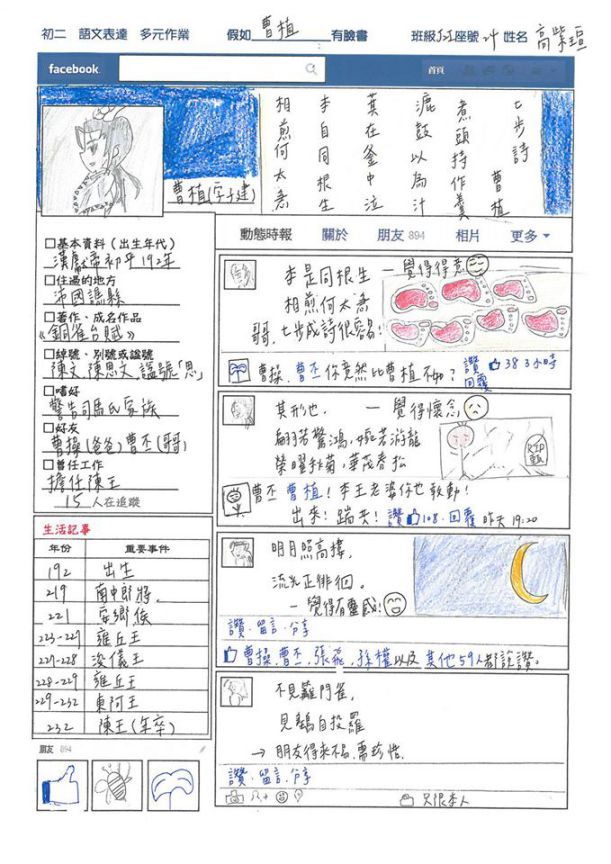 初二 語文表達 多元作業 假如曹植有臉書 班級 座號 姓名
facebook 首頁
七步詩 曹植
煮頭持作羹
漉鼓以為汁
萁在釜中泣
本自同根生
相煎何太急
曹植(字子建)
動態時報 關於 朋友 894 相片 更多
□基本資料(出生年代)
漢獻帝初平192年
□住過的地方
沛國譙縣
□著作、成名作品
《銅雀台賦》
□綽號、別號或諡號
陳文,陳思文,諡號「思」
□嗜好
警告司馬氏家族
□好友
曹操(爸爸)曹丕(哥哥)
□曾任工作
擔任陳王
15 人在追蹤
生活記事
年份 重要事件
192 出生
219 南中郎將.
221 安鄉侯
223-227 雍丘王
227-228 浚儀王
228-229 雍丘王
229-232 東阿王
232 陳王(年卒)
朋友 894
本是同根生 —覺得得意
相煎何太急
哥,七步成詩很容易!
曹操,曹丕你竟然比曹植不如? 讚 38 3小時
回覆
其形也. —覺得懷念
翩若驚鴻,婉若游龍
榮曜秋菊,華茂春松
RIP
曹丕 曹植!
出來!踹共! 讚 108.回覆 昨天19:20
明月照高樓,
流光正徘徊。
—覺得有靈感!
讚.留言.分享
曹操,曹丕,張飛,孫權以及其他59人都說讚。
不見籬門雀,
見鷂自投羅
→朋友得來不易,需珍惜.
讚.留言.分享
只限本人